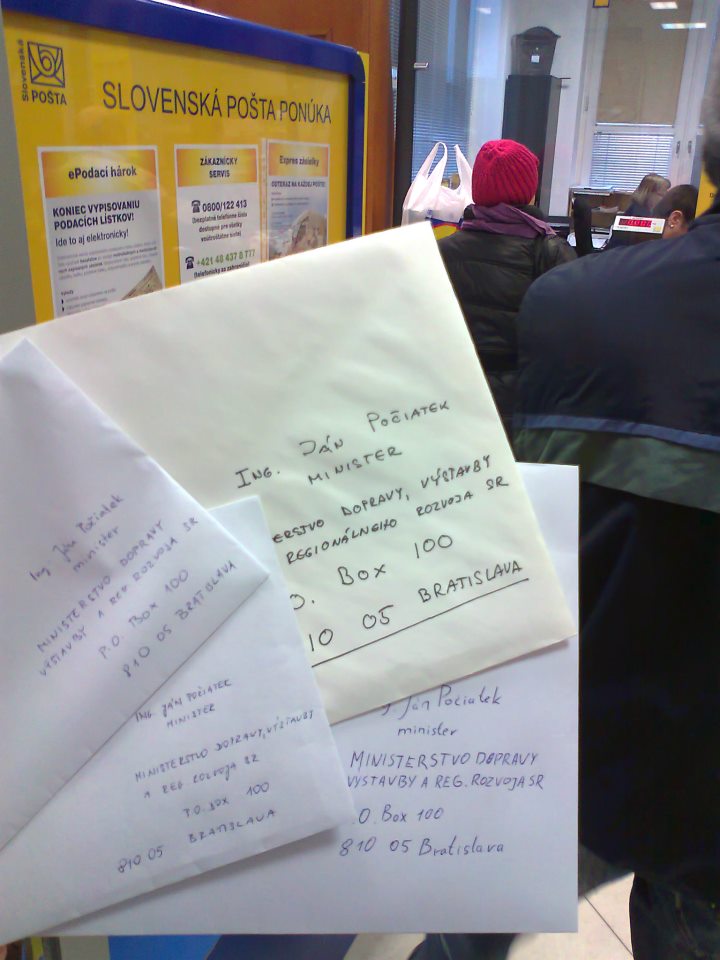 Slovenská
POŠTA
SLOVENSKÁ POŠTA PONÚKA
ePodací hárok
KONIEC VYPISOVANIU
PODACÍCH LÍSTKOV!
Ide to aj elektronicky!
ZÁKAZNÍCKY
SERVIS
0800/122 413
(bezplatné telefónne číslo
+421 48 437 8 777
(telefonicky zo zahraničia)
Expres zásielky
ODTERAZ NA KAŽDEJ POŠTE!
ING. JÁN POČIATEK
MINISTER
ERSTVO DOPRAVY, VÝSTAVBY
REGIONÁLNEHO ROZVOJA SR
O. BOX 100
10 05 BRATISLAVA
Ing. Ján Počiatek
minister
MINISTERSTVO DOPRAVY
VÝSTAVBY A REG. ROZVOJA SR
P.O. BOX 100
810 05 BRATISLAVA
ING. JÁN POČIATEK
MINISTER
MINISTERSTVO DOPRAVY, VÝSTAVBY
A REG. ROZVOJA SR
P.O. BOX 100
810 05 BRATISLAVA
. Ján Počiatek
minister
MINISTERSTVO DOPRAVY
VÝSTAVBY A REG. ROZVOJA SR
.O. Box 100
810 05 Bratislava